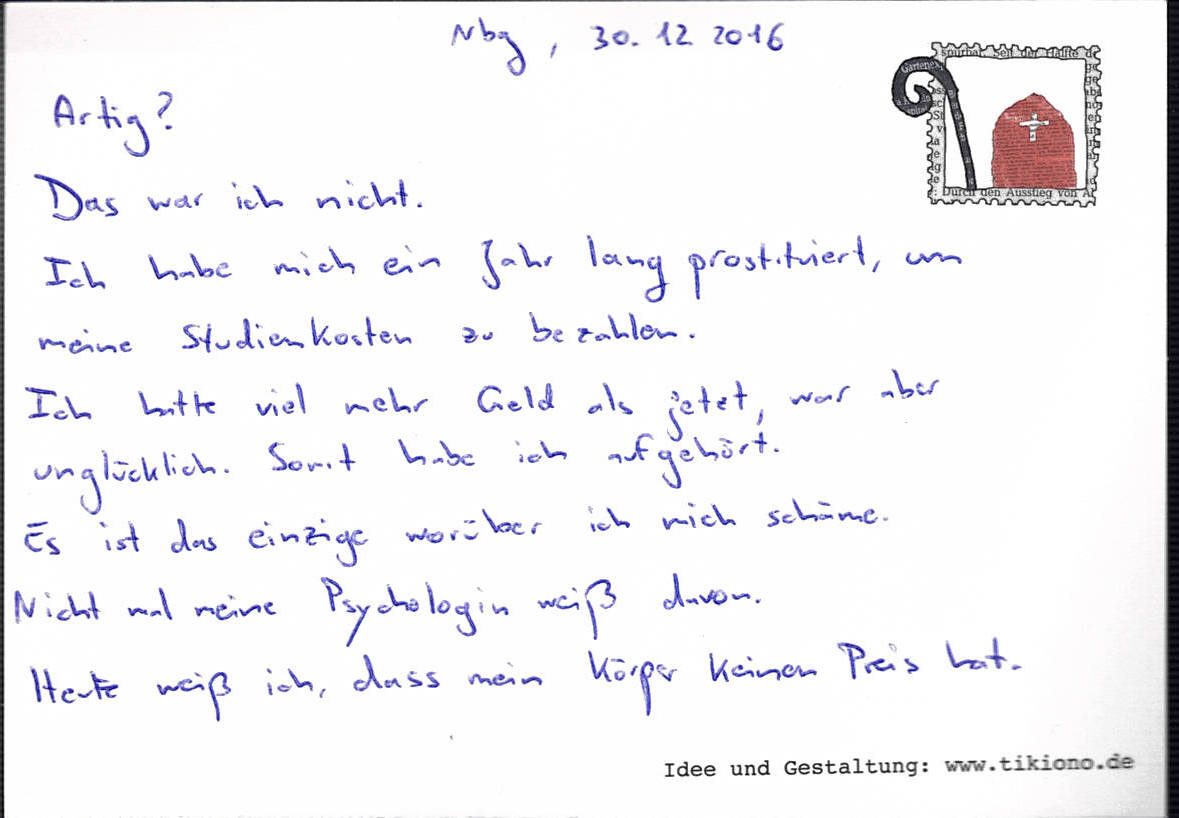 Nbg, 30.12 2016
spürbar. Seit der Hälfte d
Garten
Artig?
Durch den Ausstieg von A
Das war ich nicht.
Ich habe mich ein Jahr lang prostituiert, um
meine Studienkosten zu bezahlen.
Ich hatte viel mehr Geld als jetzt, war aber
unglücklich. Somit habe ich aufgehört.
Es ist das einzige worüber ich mich schäme.
Nicht mal meine Psychologin weiß davon.
Heute weiß ich, dass mein Körper keinen Preis hat.
Idee und Gestaltung: www.tikiono.de